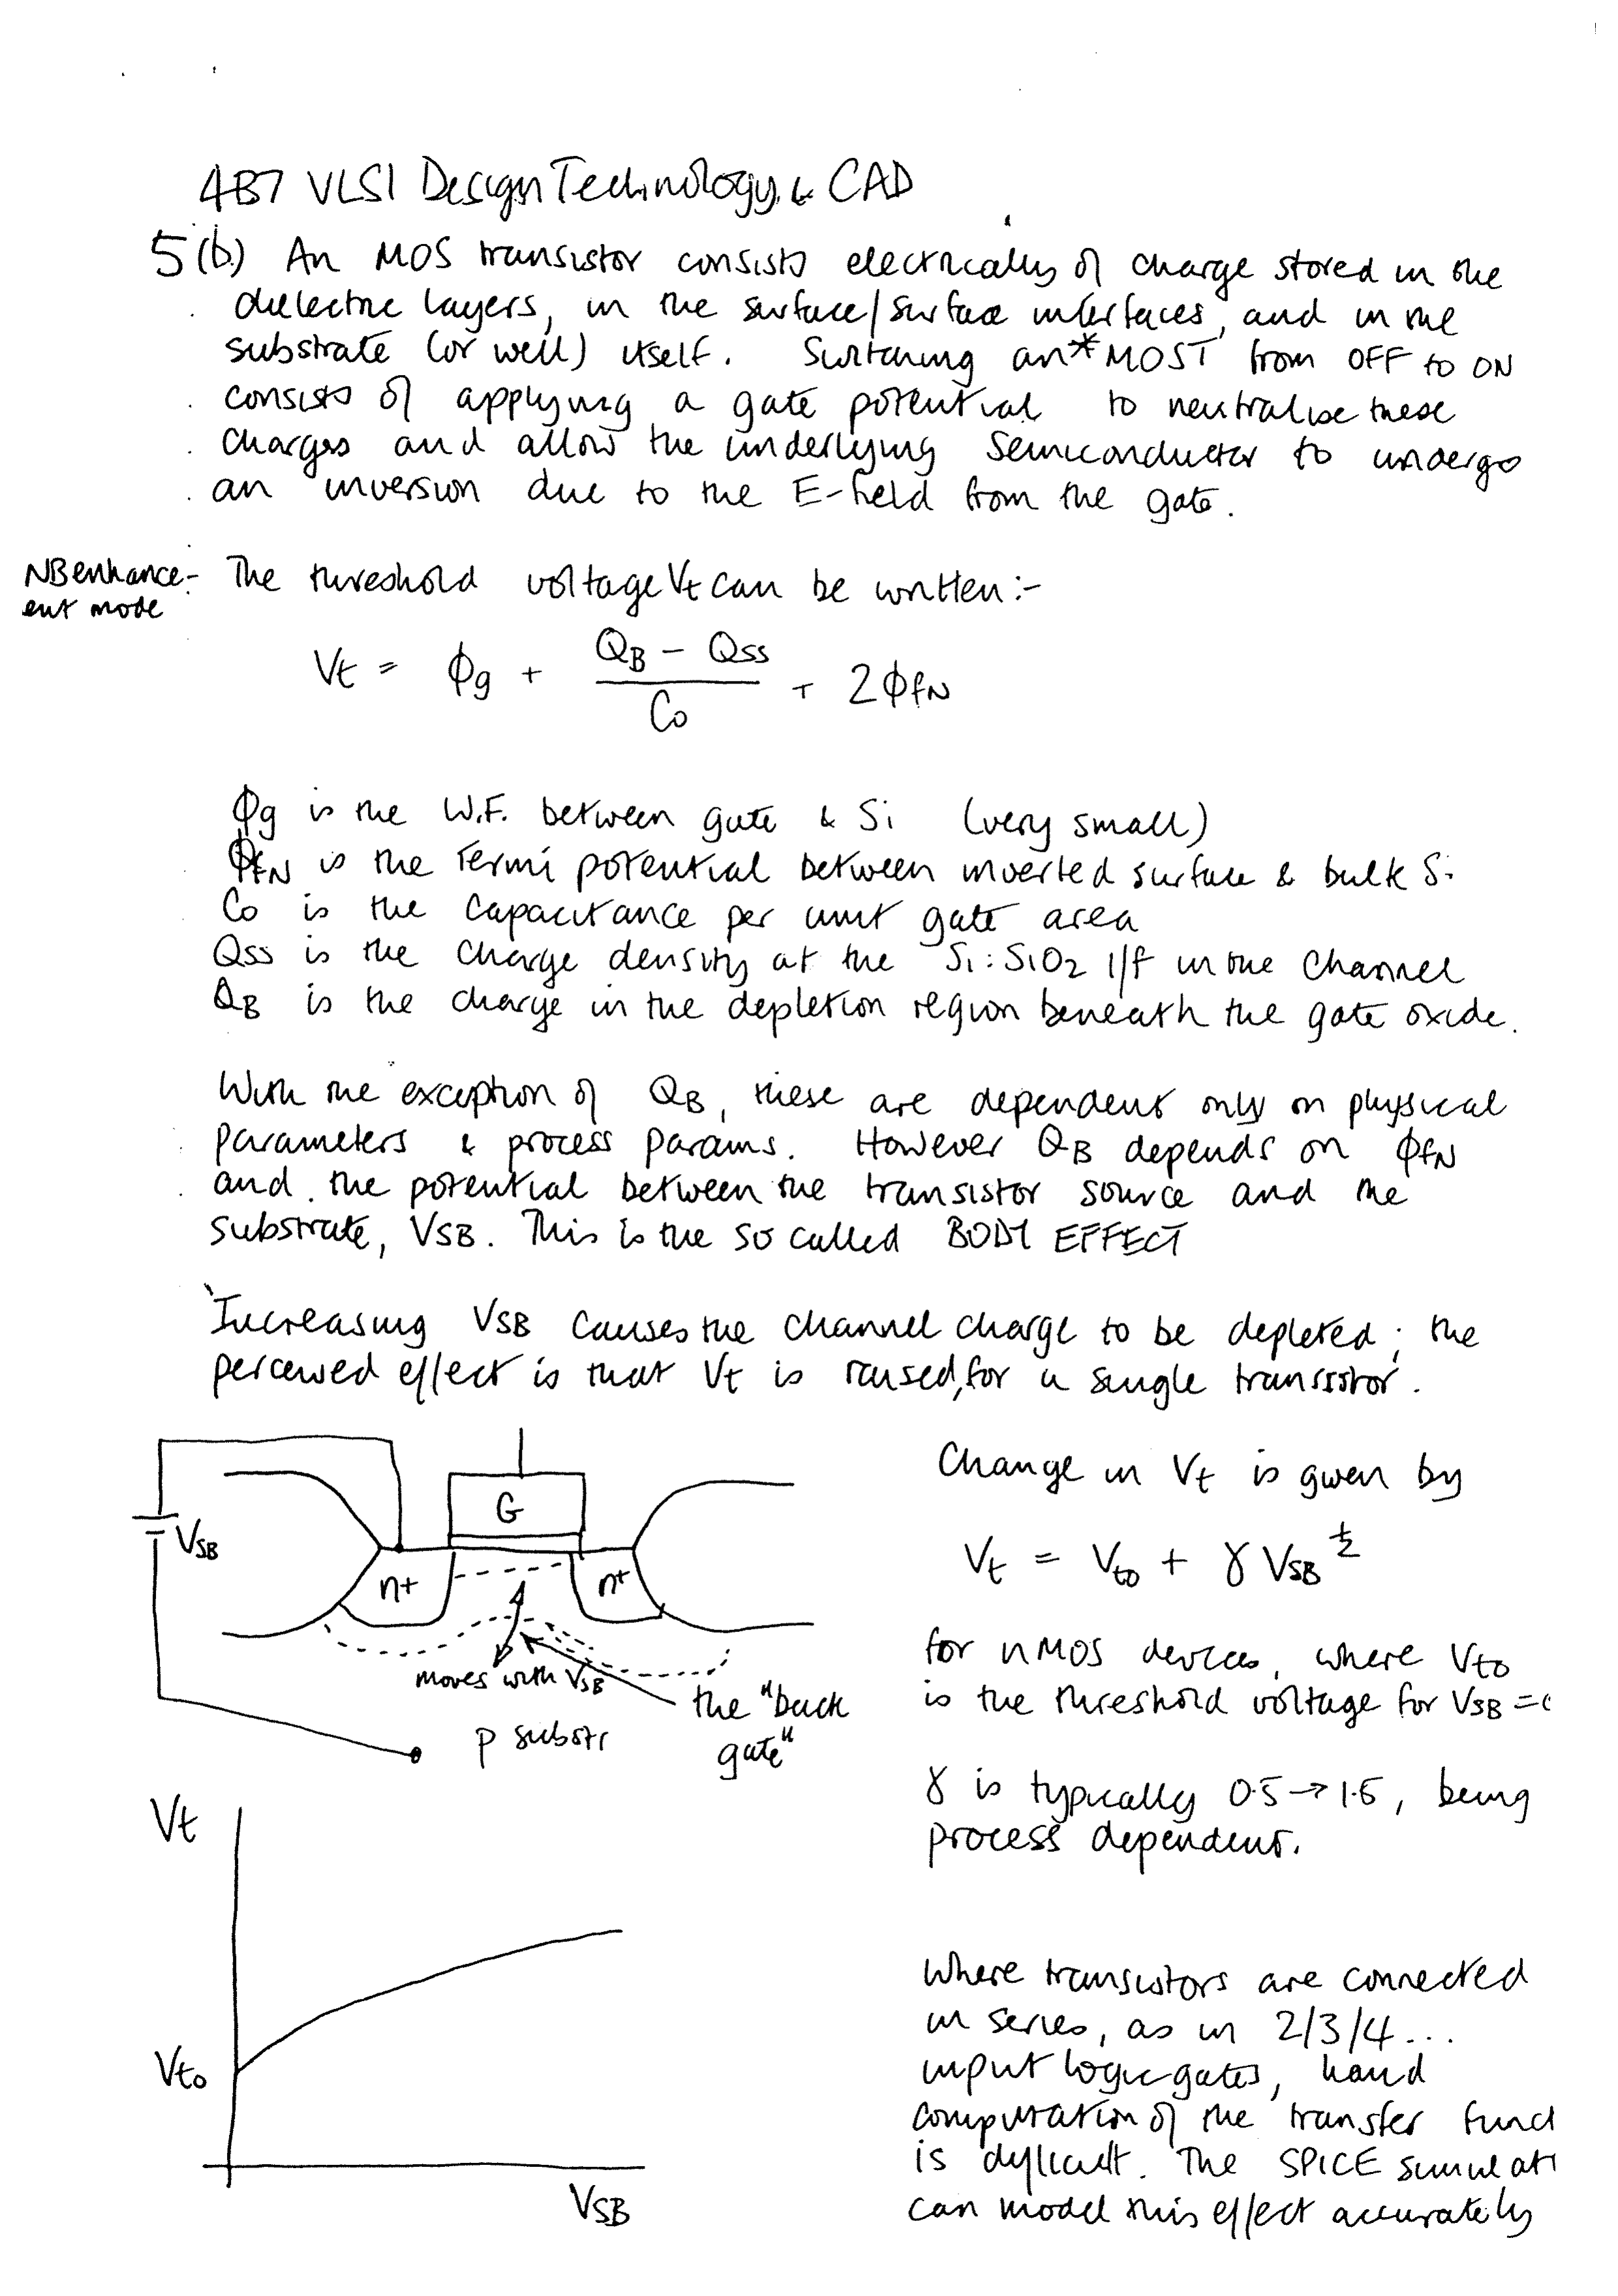 4B7 VLSI Design Technology & CAD
5(b) An MOS transistor consists electrically of charge stored in the
dielectric layers, in the surface/surface interfaces, and in the
substrate (or well) itself. Switching an* MOST from OFF to ON
consists of applying a gate potential to neutralise these
charges and allow the underlying semiconductor to undergo
an inversion due to the E-field from the gate.
NB enhance-
ent mode
The threshold voltage Vt can be written:-
Vt = φg + (QB - Qss)/Co + 2φfN
φg is the W.F. between gate & Si (very small)
φfN is the Fermi potential between inverted surface & bulk Si
Co is the capacitance per unit gate area
Qss is the charge density at the Si:SiO2 i/f in the channel
QB is the charge in the depletion region beneath the gate oxide.
With the exception of QB, these are dependent only on physical
parameters & process params. However QB depends on φfN
and the potential between the transistor source and the
substrate, VSB. This is the so called BODY EFFECT
Increasing VSB causes the channel charge to be depleted; the
perceived effect is that Vt is raised, for a single transistor.
VSB
G
n+
n+
moves with VSB
the "back
gate"
p substr
Change in Vt is given by
Vt = Vto + γ VSB ½
for nMOS devices, where Vto
is the threshold voltage for VSB =
γ is typically 0.5 → 1.5, being
process dependent.
Vt
Vto
VSB
Where transistors are connected
in series, as in 2/3/4...
input logic gates, hand
computation of the transfer funct
is difficult. The SPICE simulati
can model this effect accurately